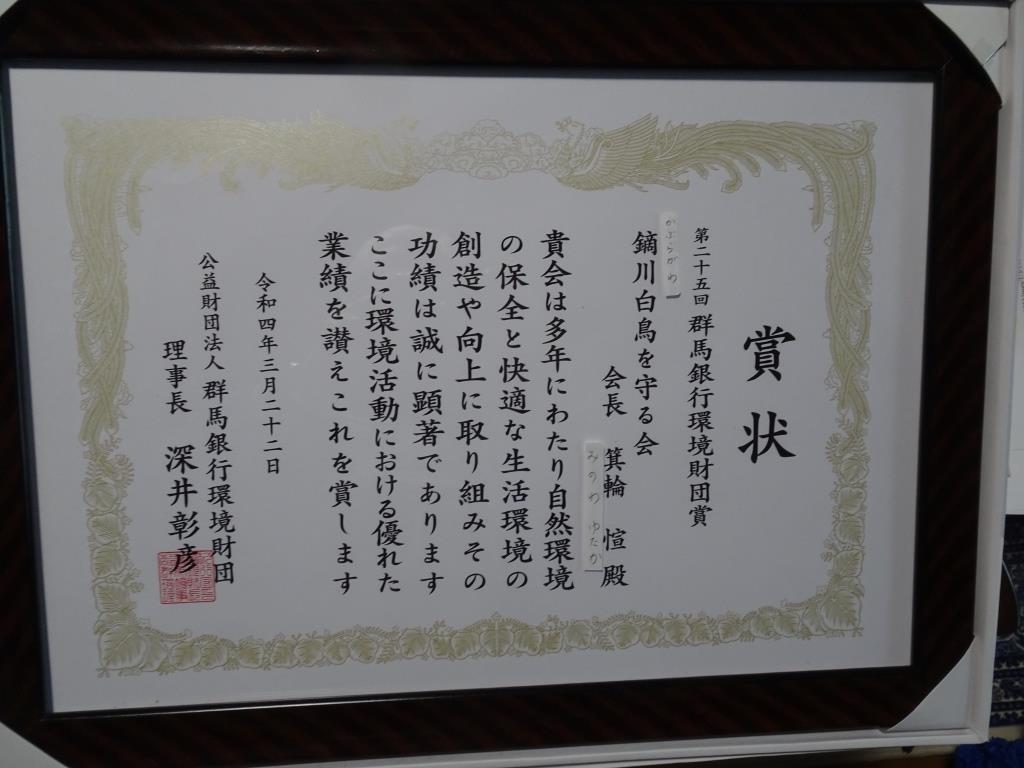 賞状
第二十五回 群馬銀行環境財団賞
かぶらがわ
鏑川白鳥を守る会
会長 箕輪 愃 殿
みのわ ゆたか
貴会は多年にわたり自然環境
の保全と快適な生活環境の
創造や向上に取り組みその
功績は誠に顕著であります
ここに環境活動における優れた
業績を讃えこれを賞します
令和四年三月二十二日
公益財団法人 群馬銀行環境財団
理事長 深井彰彦